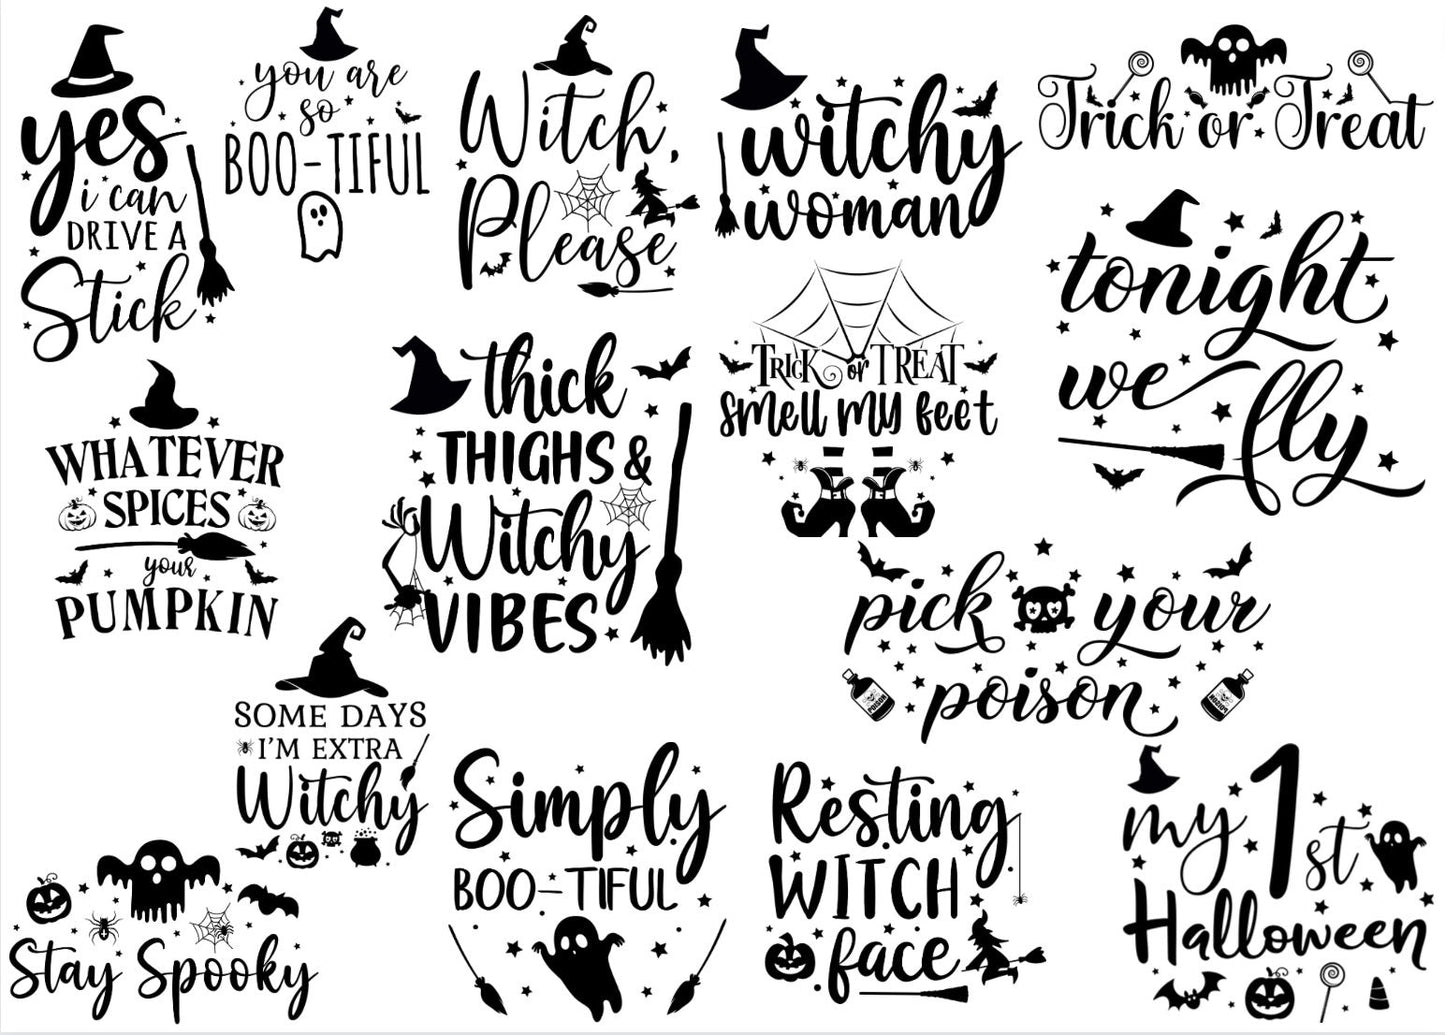 yes
i can
DRIVE A
Stick
you are
so
BOO-TIFUL
Witch,
Please
witchy
woman
Trick or Treat
tonight
we fly
WHATEVER
SPICES
your
PUMPKIN
thick
THIGHS &
Witchy
VIBES
TRICK or TREAT
smell my feet
pick your
poison
POISON
POISON
SOME DAYS
I'M EXTRA
Witchy
Stay Spooky
Simply
BOO-TIFUL
Resting
WITCH
face
my 1st
Halloween